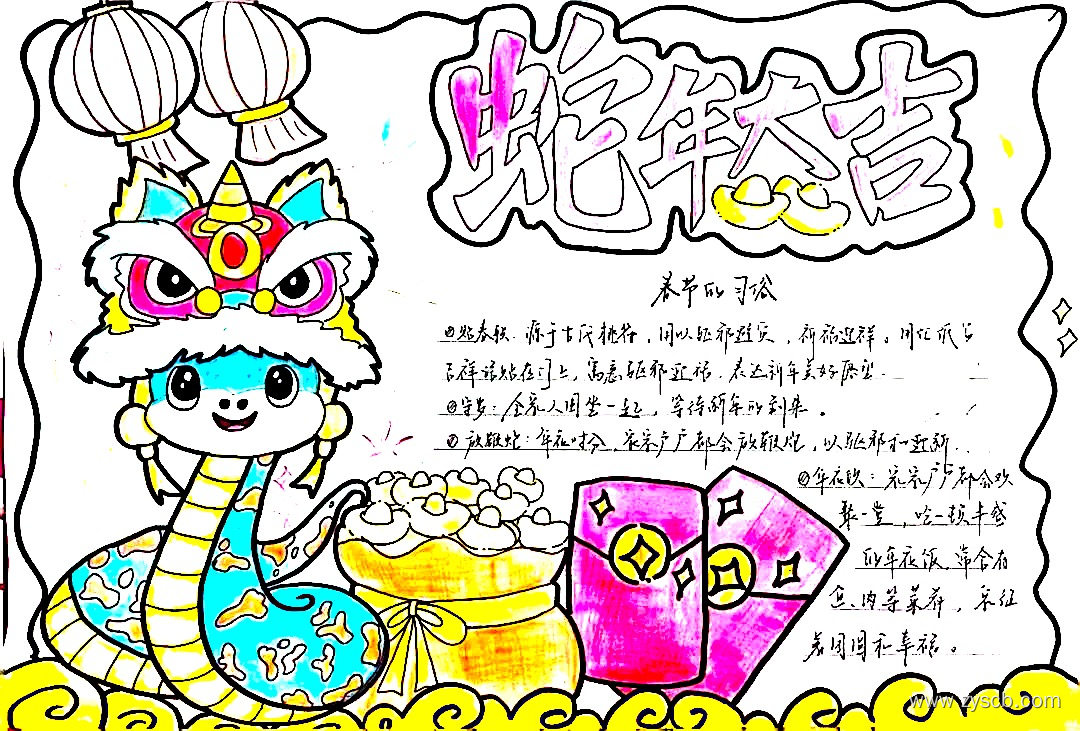 蛇年大吉
春节的习俗
①贴春联：源于古代桃符，用以驱邪避灾，祈福迎祥。用红纸写
吉祥语贴在门上，寓意驱邪迎福，表达新年美好愿望。
②守岁：全家人围坐一起，等待新年的到来。
③放鞭炮：年夜时分，家家户户都会放鞭炮，以驱邪和迎新。
④年夜饭：家家户户都会欢
聚一堂，吃一顿丰盛
的年夜饭，常会有
鱼、肉等菜肴，象征
着团圆和幸福。
www.zyscb.com